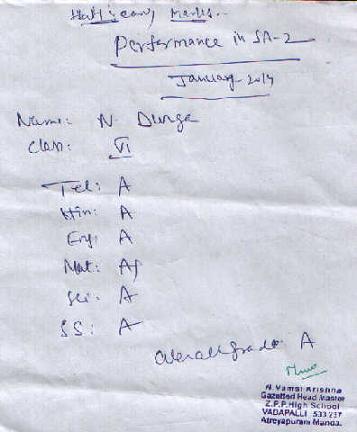 Half yearly Marks..
Performance in SA-2
January-2014
Name: N. Durga
Class: VI
Tel: A
Hin: A
Eng: A
Mat: A+
Sci: A
SS: A
Overall grade: A
N.Vamsi Krishna
Gazetted Head Master
Z.P.P.High School
VADAPALLI 533 237
Atreyapuram Manda.